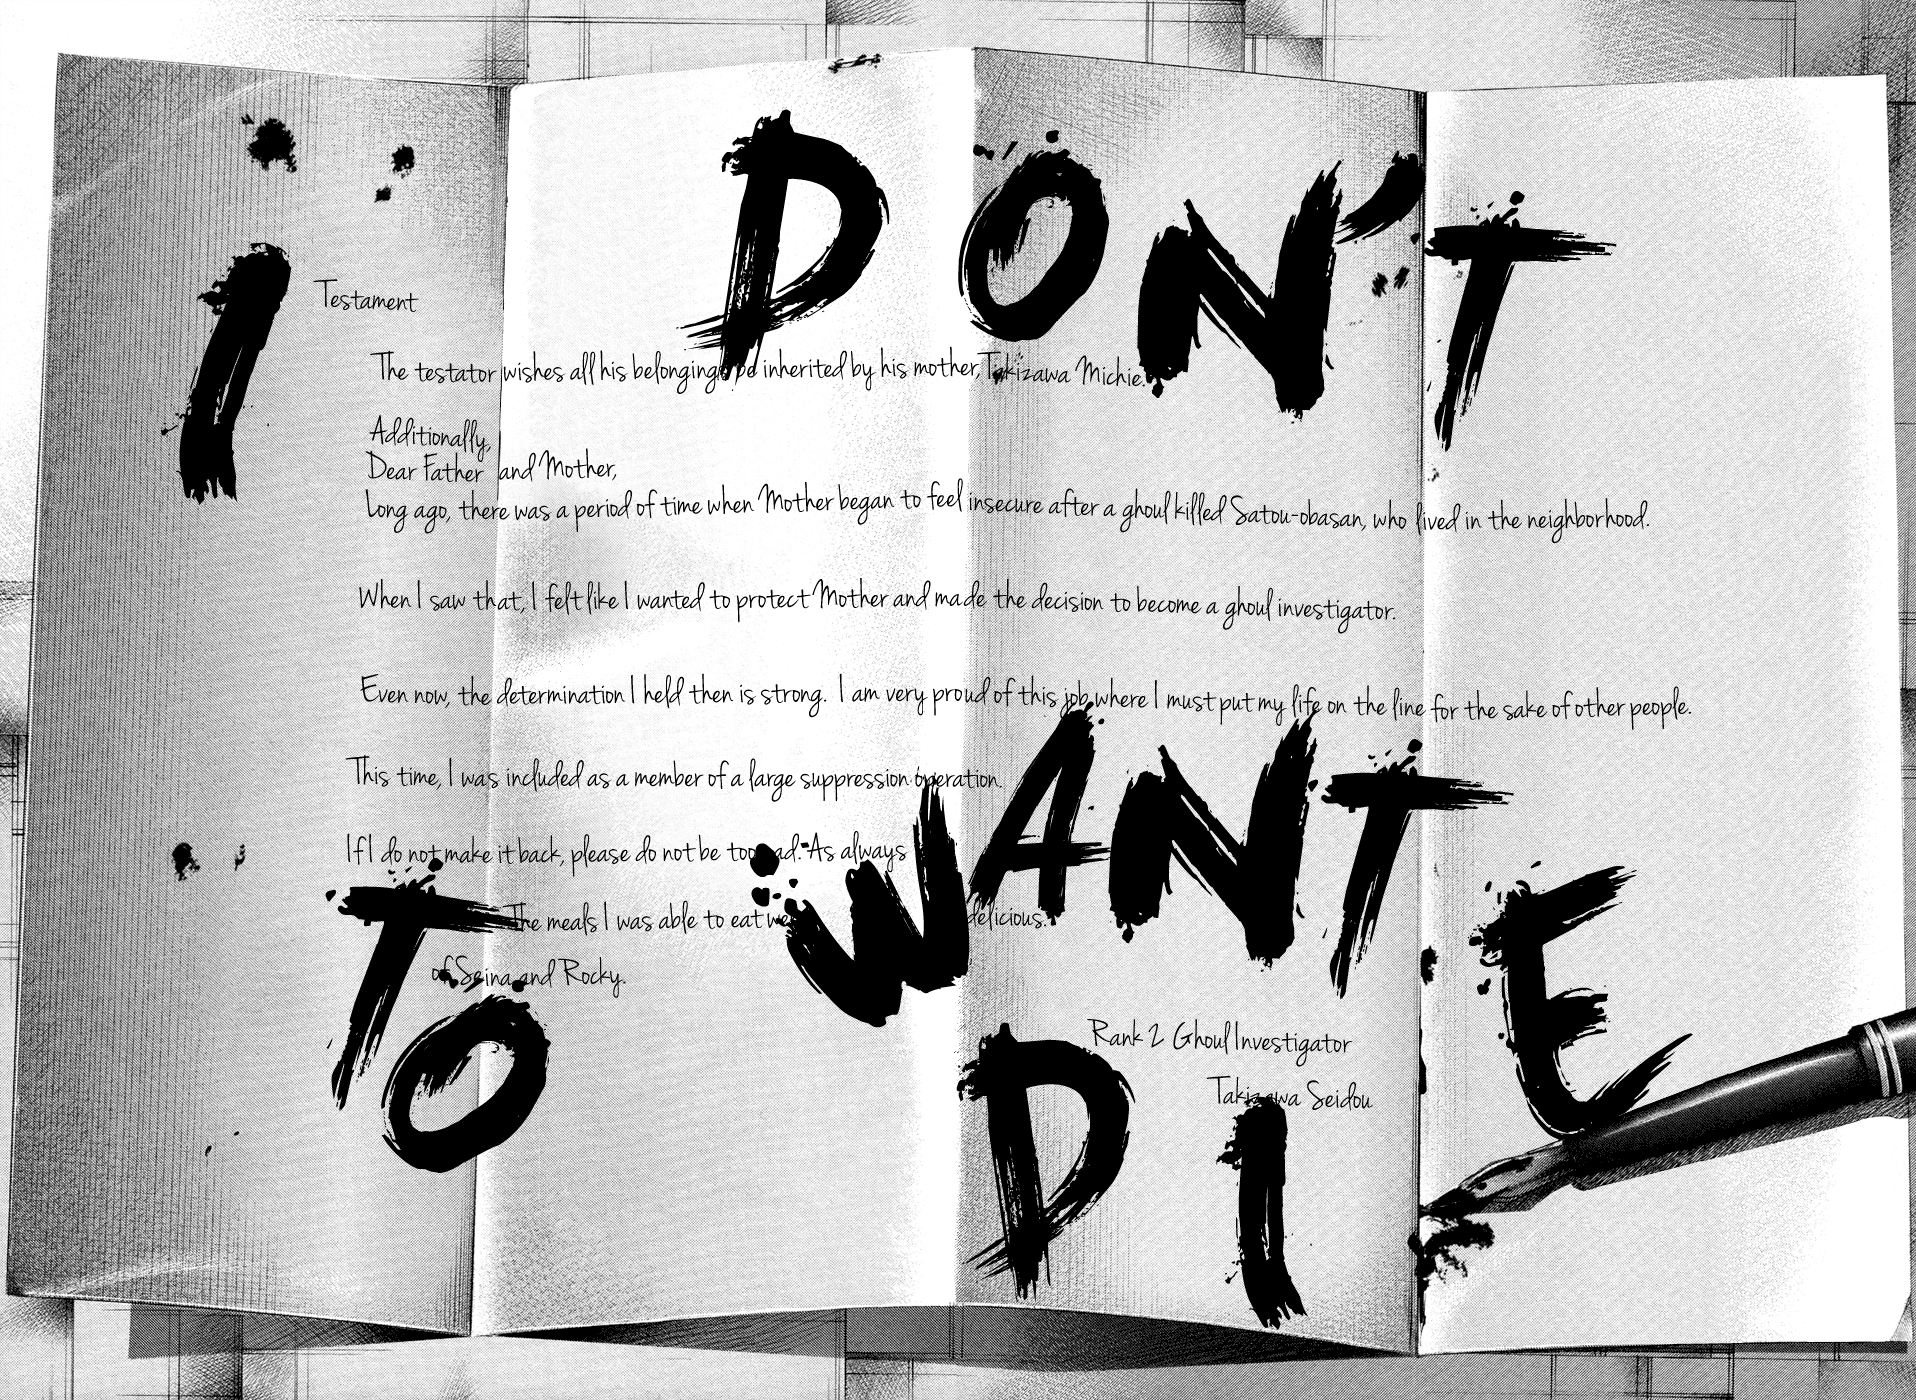 I DON'T WANT TO DIE
Testament
The testator wishes all his belongings be inherited by his mother, Takizawa Michie.
Additionally,
Dear Father and Mother,
Long ago, there was a period of time when Mother began to feel insecure after a ghoul killed Satou-obasan, who lived in the neighborhood.
When I saw that, I felt like I wanted to protect Mother and made the decision to become a ghoul investigator.
Even now, the determination I held then is strong. I am very proud of this job where I must put my life on the line for the sake of other people.
This time, I was included as a member of a large suppression operation.
If I do not make it back, please do not be too sad. As always
The meals I was able to eat delicious.
of Seina and Rocky.
Rank 2 Ghoul Investigator
Takizawa Seidou